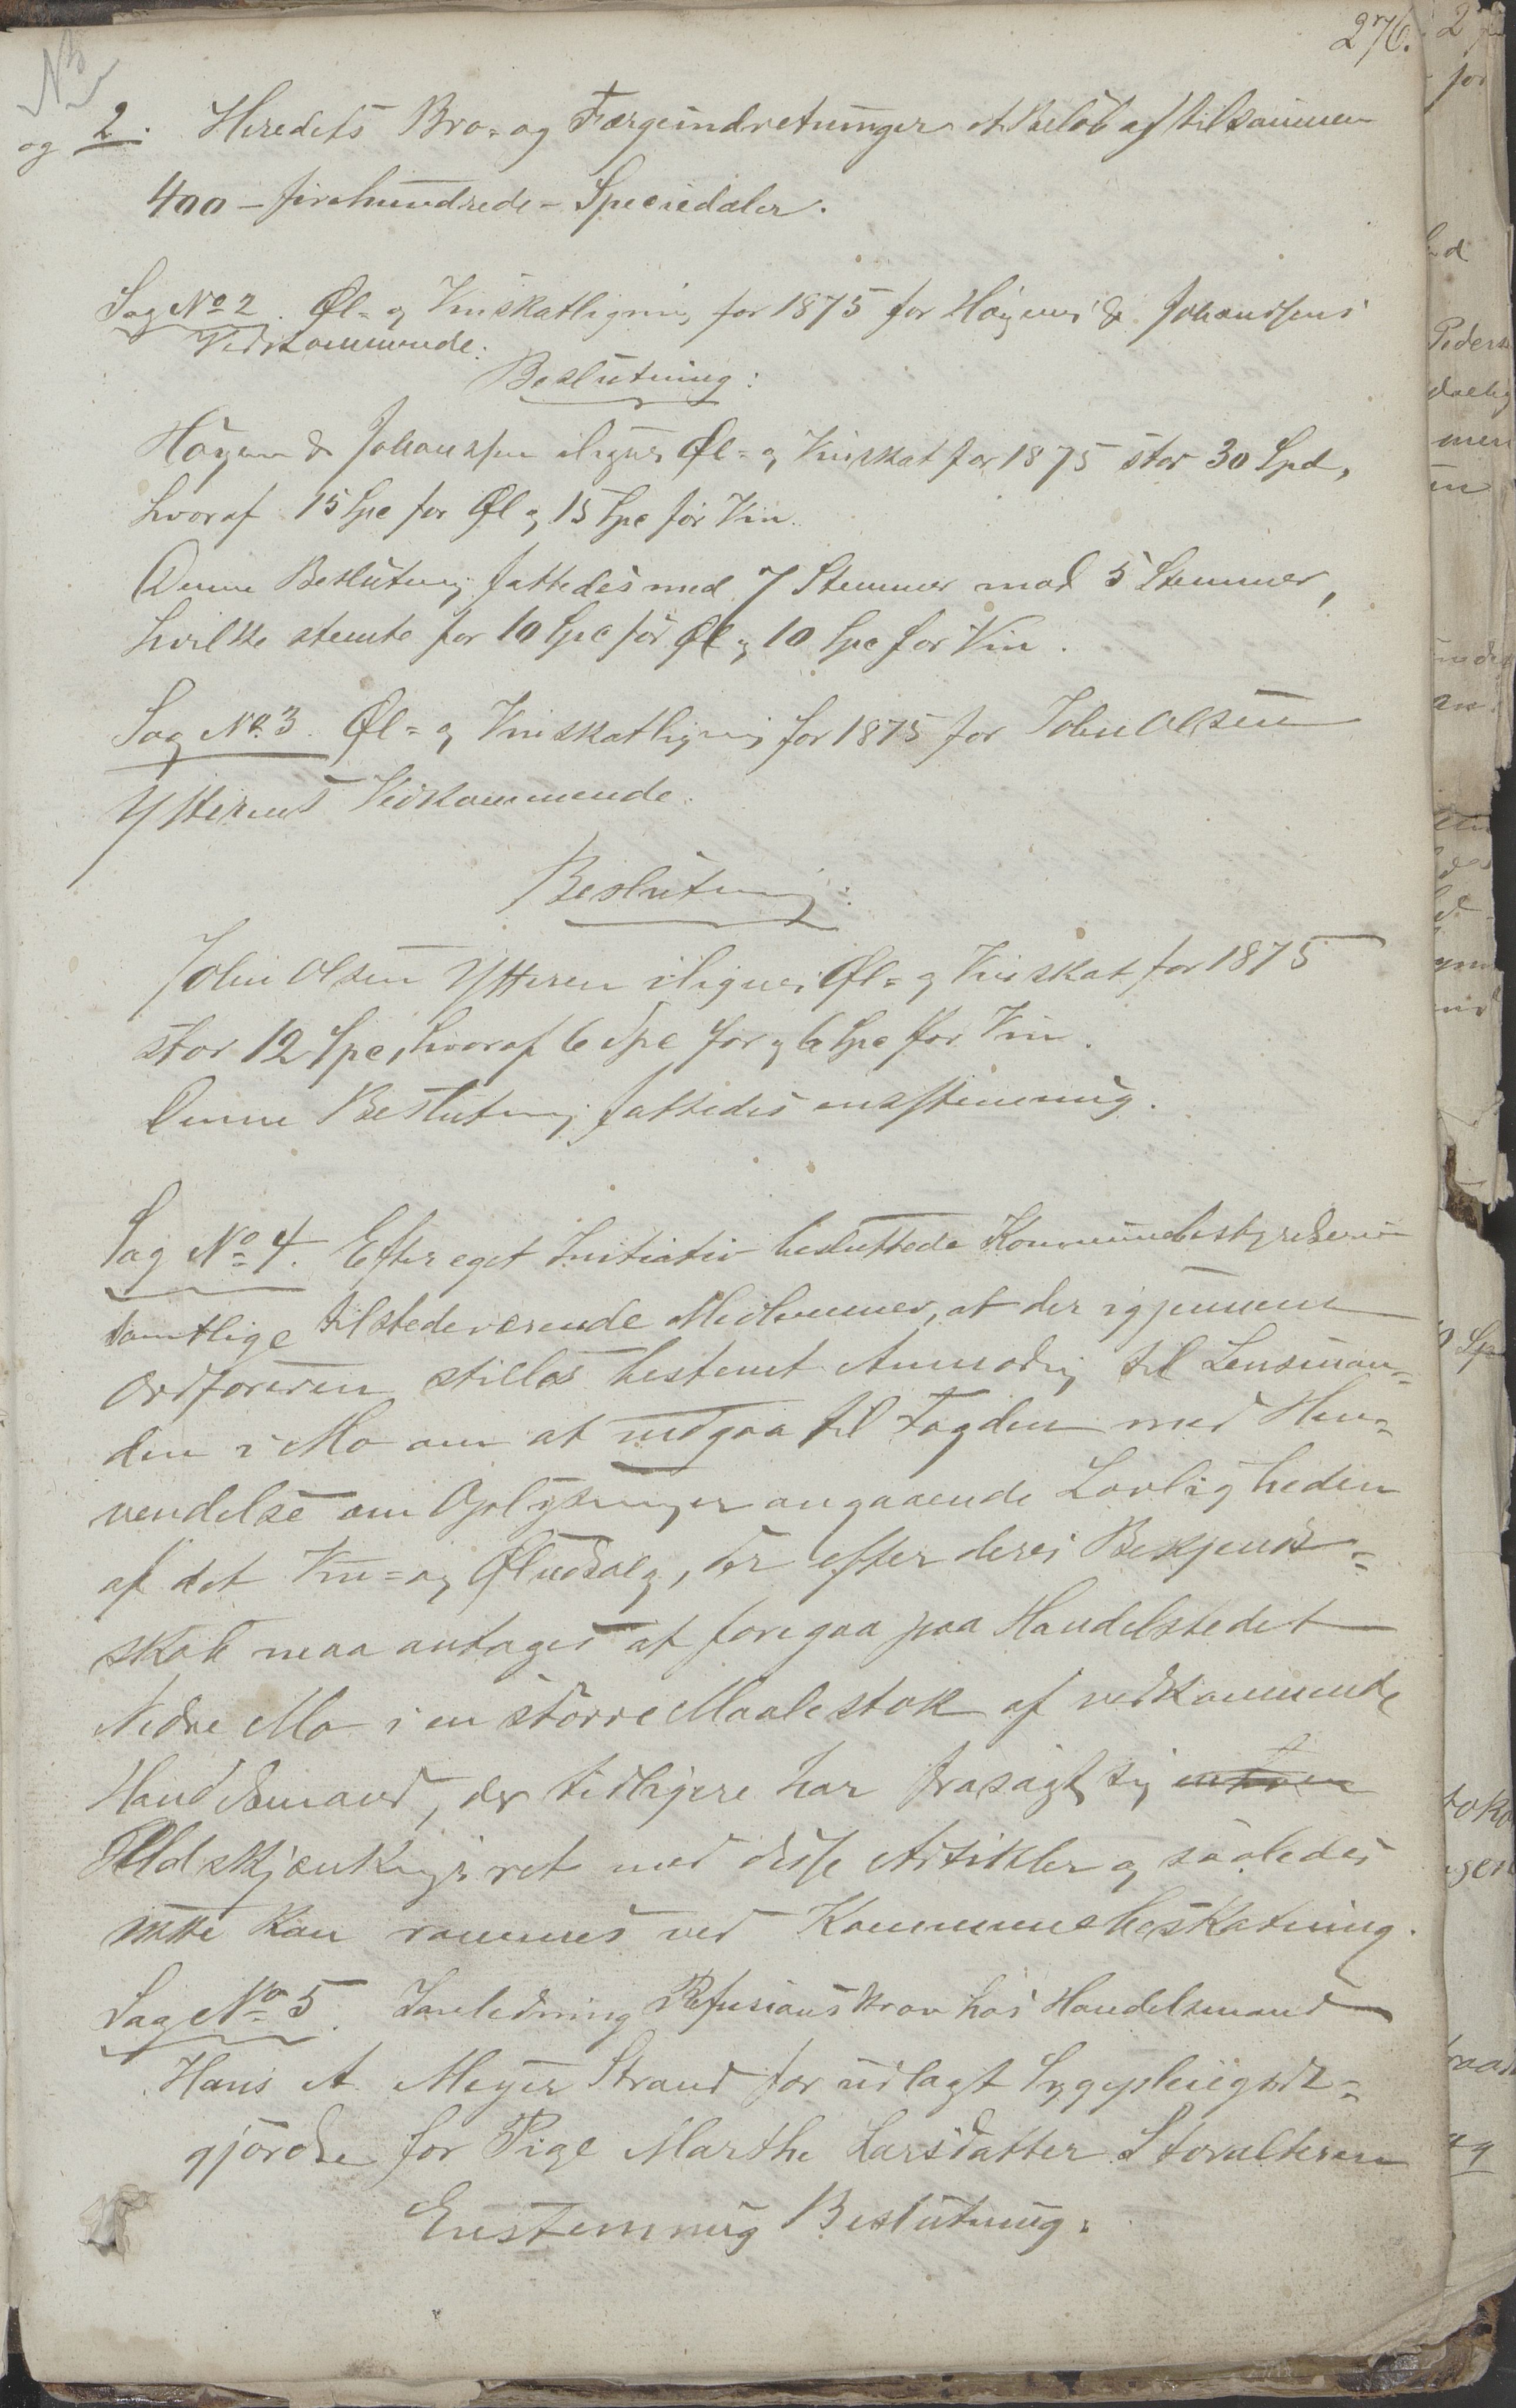 276.
NB
og 2. Heredets Bro- og Færgeindretninger et Beløb af tilsammen
400 - firehundrede - Speciedaler.
Sag No 2. Øl- og Vinskatligning for 1875 for Høyen & Johansens
Vedkommende.
Beslutning:
Høyen & Johansen ilignes Øl- og Vinskat for 1875 stor 30 Spd,
hvoraf 15 Spe for Øl og 15 Spe for Vin.
Denne Beslutning fattedes med 7 Stemmer mod 5 Stemmer,
hvilke stemte for 10 Spe for Øl og 10 Spe for Vin.
Sag No 3. Øl- og Vinskatligning for 1875 for John Olsen
Ytterens Vedkommende.
Beslutning:
John Olsen Ytteren ilignes Øl- og Vinskat for 1875
stor 12 Spe, hvoraf 6 Spe for og 6 Spe for Vin.
Denne Beslutning fattedes enstemmig.
Sag No 4. Efter eget Initiativ besluttede Kommunebestyrelsens
samtlige tilstedeværende Medlemmer, at der igjennem
Ordføreren stilles bestemt Anmodning til Lensman-
den i Mo om at indgaa til Fogden med Hen-
vendelse om Oplysninger angaaende Lovligheden
af det Vin- og Øludsalg, der efter deres Bekjendt-
skab maa antages at foregaa paa Handelstedet
Nedre Mo i en større Maalestok af vedkommende
Handelsmand, der tidligere har frasagt sig
Udskjænkningsret med disse Artikler og saaledes
ikke kan rammes ved Kommunebeskatning.
Sag No 5. Indledning Refusionskrav hos Handelsmand
Hans A. Meyer Strand for udlagt Sygepleiegodt-
gjørelse for Pige Marthe Larsdatter Storalteren
Enstemmig Beslutning: